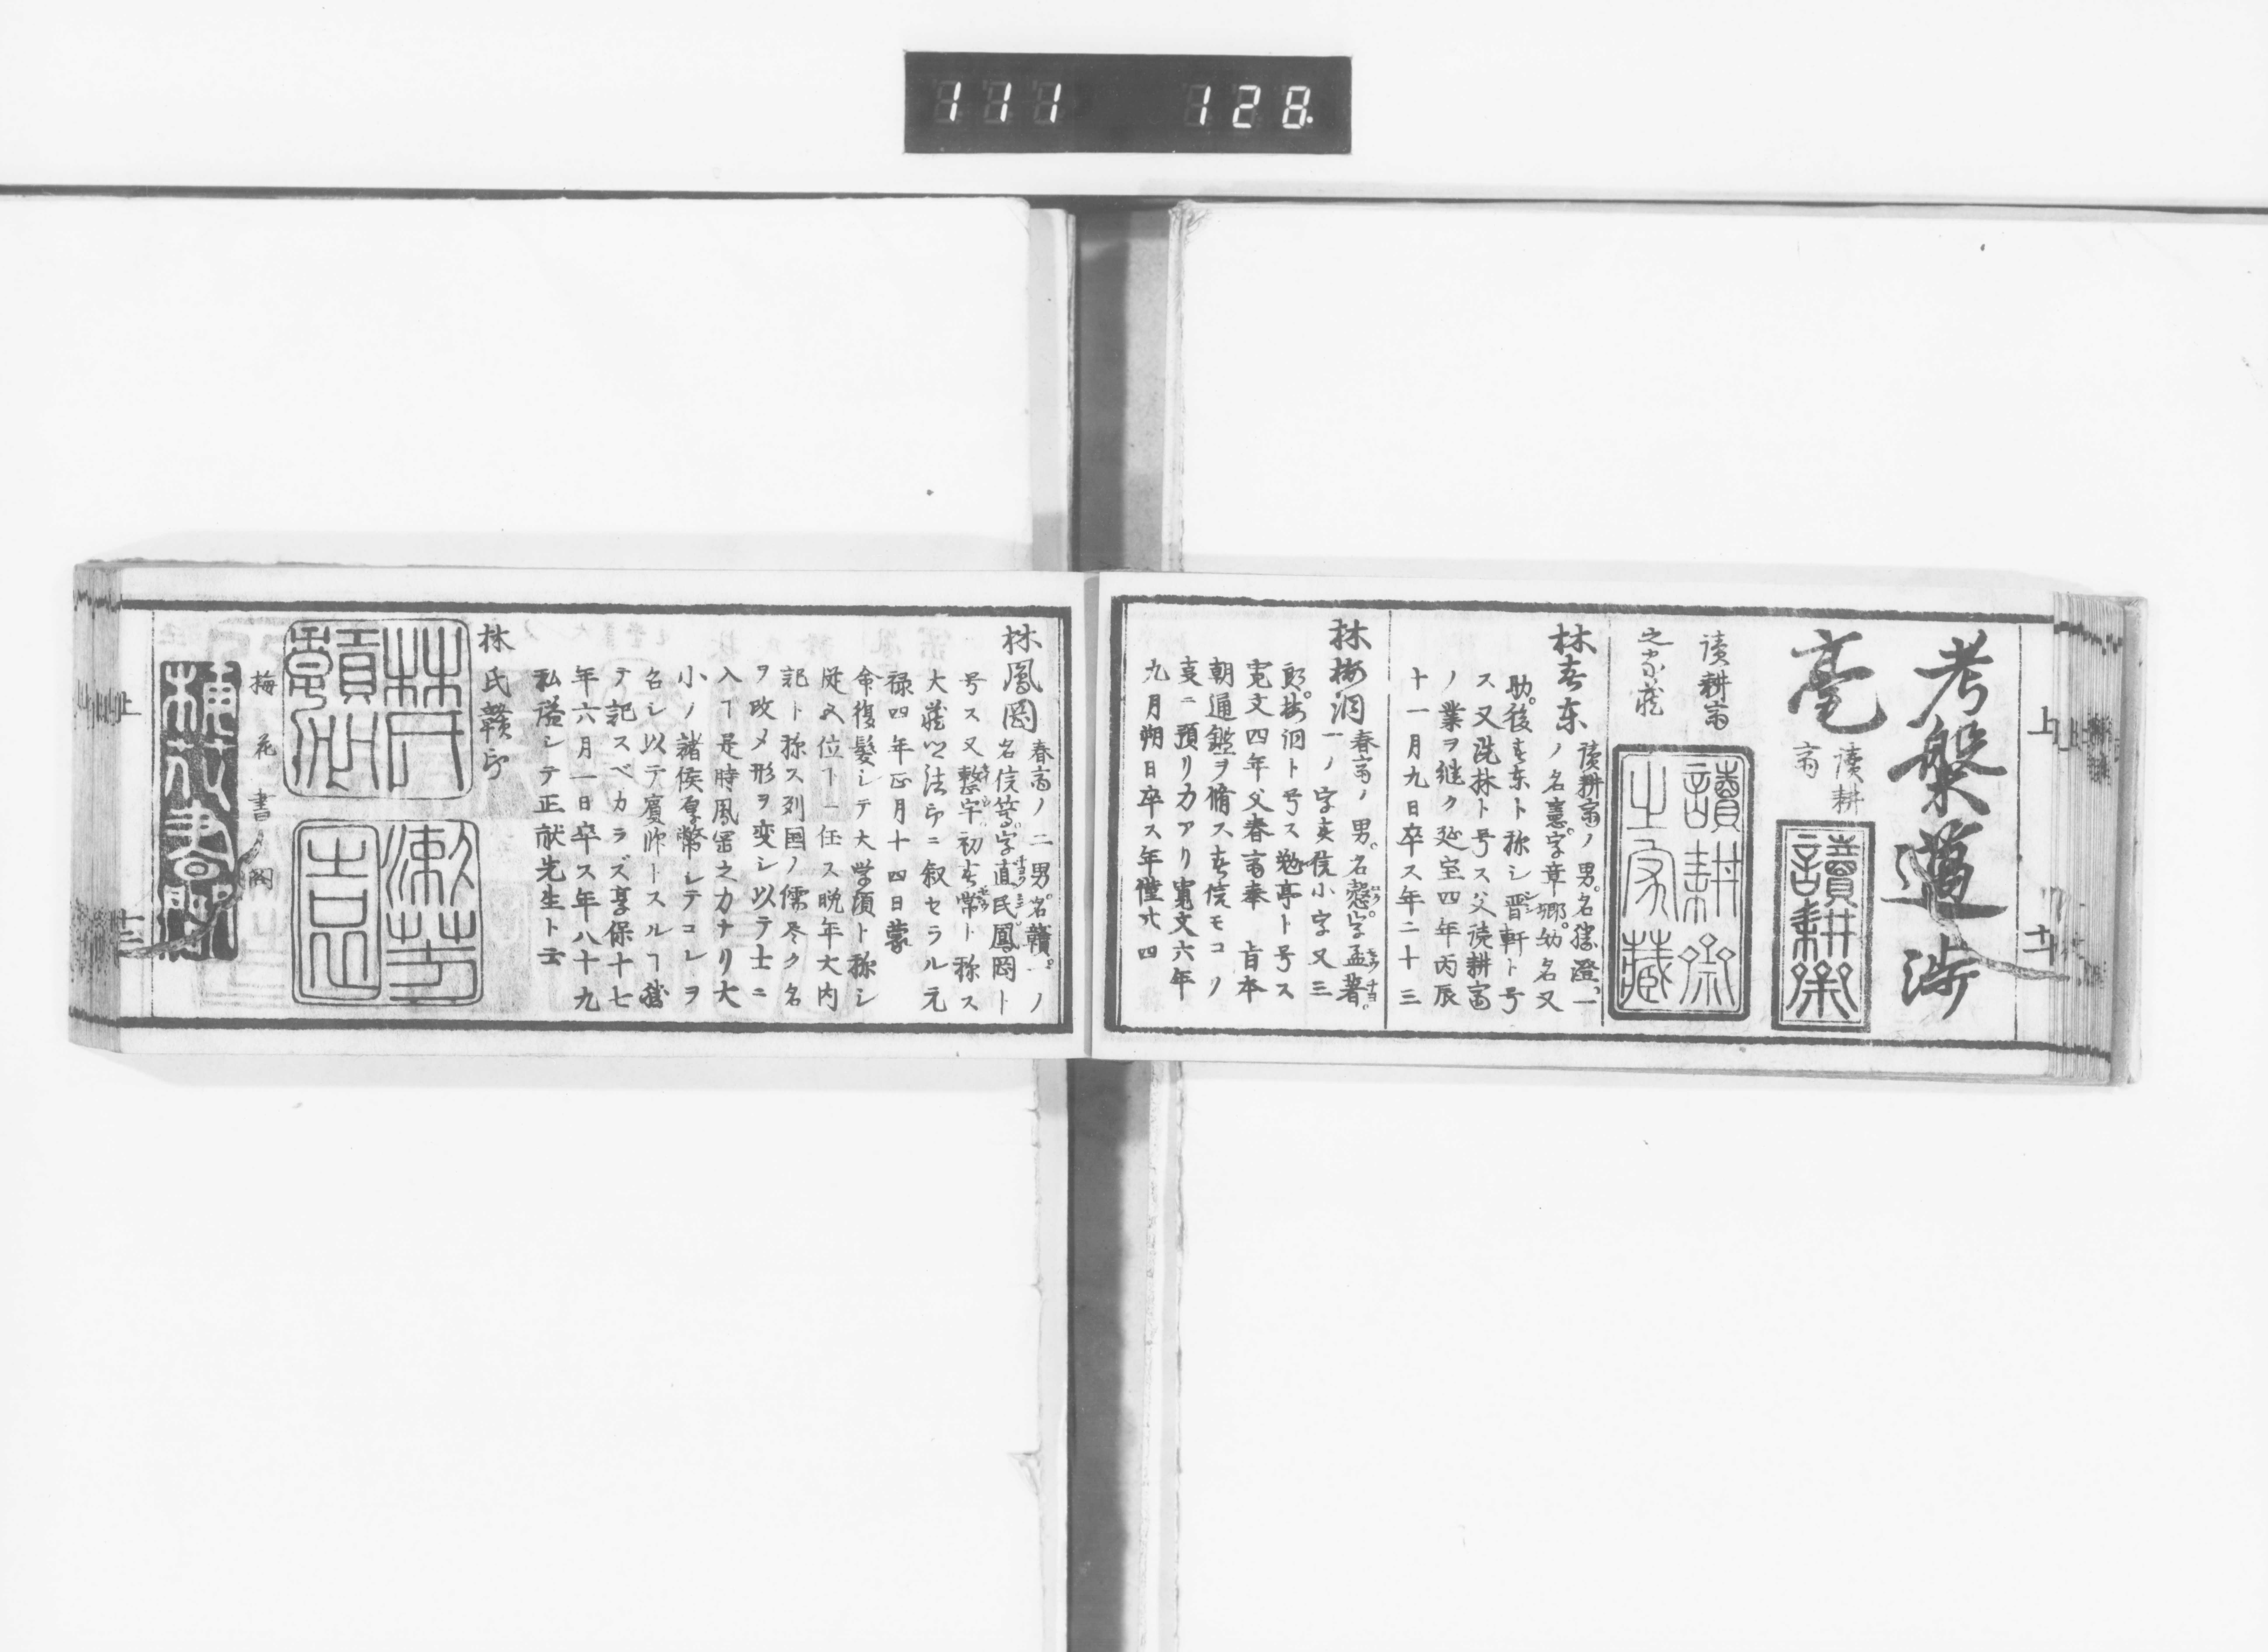 111 128
上 十二
考槃邁渉
亳
讀耕
斎
讀耕齋
讀耕斎
之家蔵
讀耕齋
之家藏
林春東
讀耕斎ノ男。名勝澄。一
ノ名憲。字章卿。幼名又
助。後春東ト称シ晋軒ト号
ス又洗林ト号ス父読耕斎
ノ業ヲ継ク延宝四年丙辰
十一月九日卒ス年二十三
林梅洞
春斎ノ男。名愨。字孟著。
一ノ字又信小字又三
郎。梅洞ト号ス勉亭ト号ス
寛文四年父春斎奉 旨本
朝通鑑ヲ脩ス春信モコノ
㕝ニ預リ力アリ寛文六年
九月朔日卒ス年僅廿四
林鳳岡
春斎ノ二男。名贛。一ノ
名信篤。字直民。鳳岡ト
号ス又整宇初春常ト称ス
大蔵卿法印ニ叙セラル元
禄四年正月十四日蒙
命復髪シテ大学頭ト称シ
従五位下ニ任ス晩年大内
記ト称ス列国ノ儒尽ク名
ヲ改メ形ヲ変シ以テ士ニ
入ル是時鳳岡之力ナリ大
小ノ諸侯厚幣シテコレヲ
名シ以テ賓師トスルヿ
テ記スベカラズ享保十七
年六月一日卒ス年八十九
私諡シテ正献先生ト云
林氏贛印
漱芳
梅花書閣
梅花書閣
十三